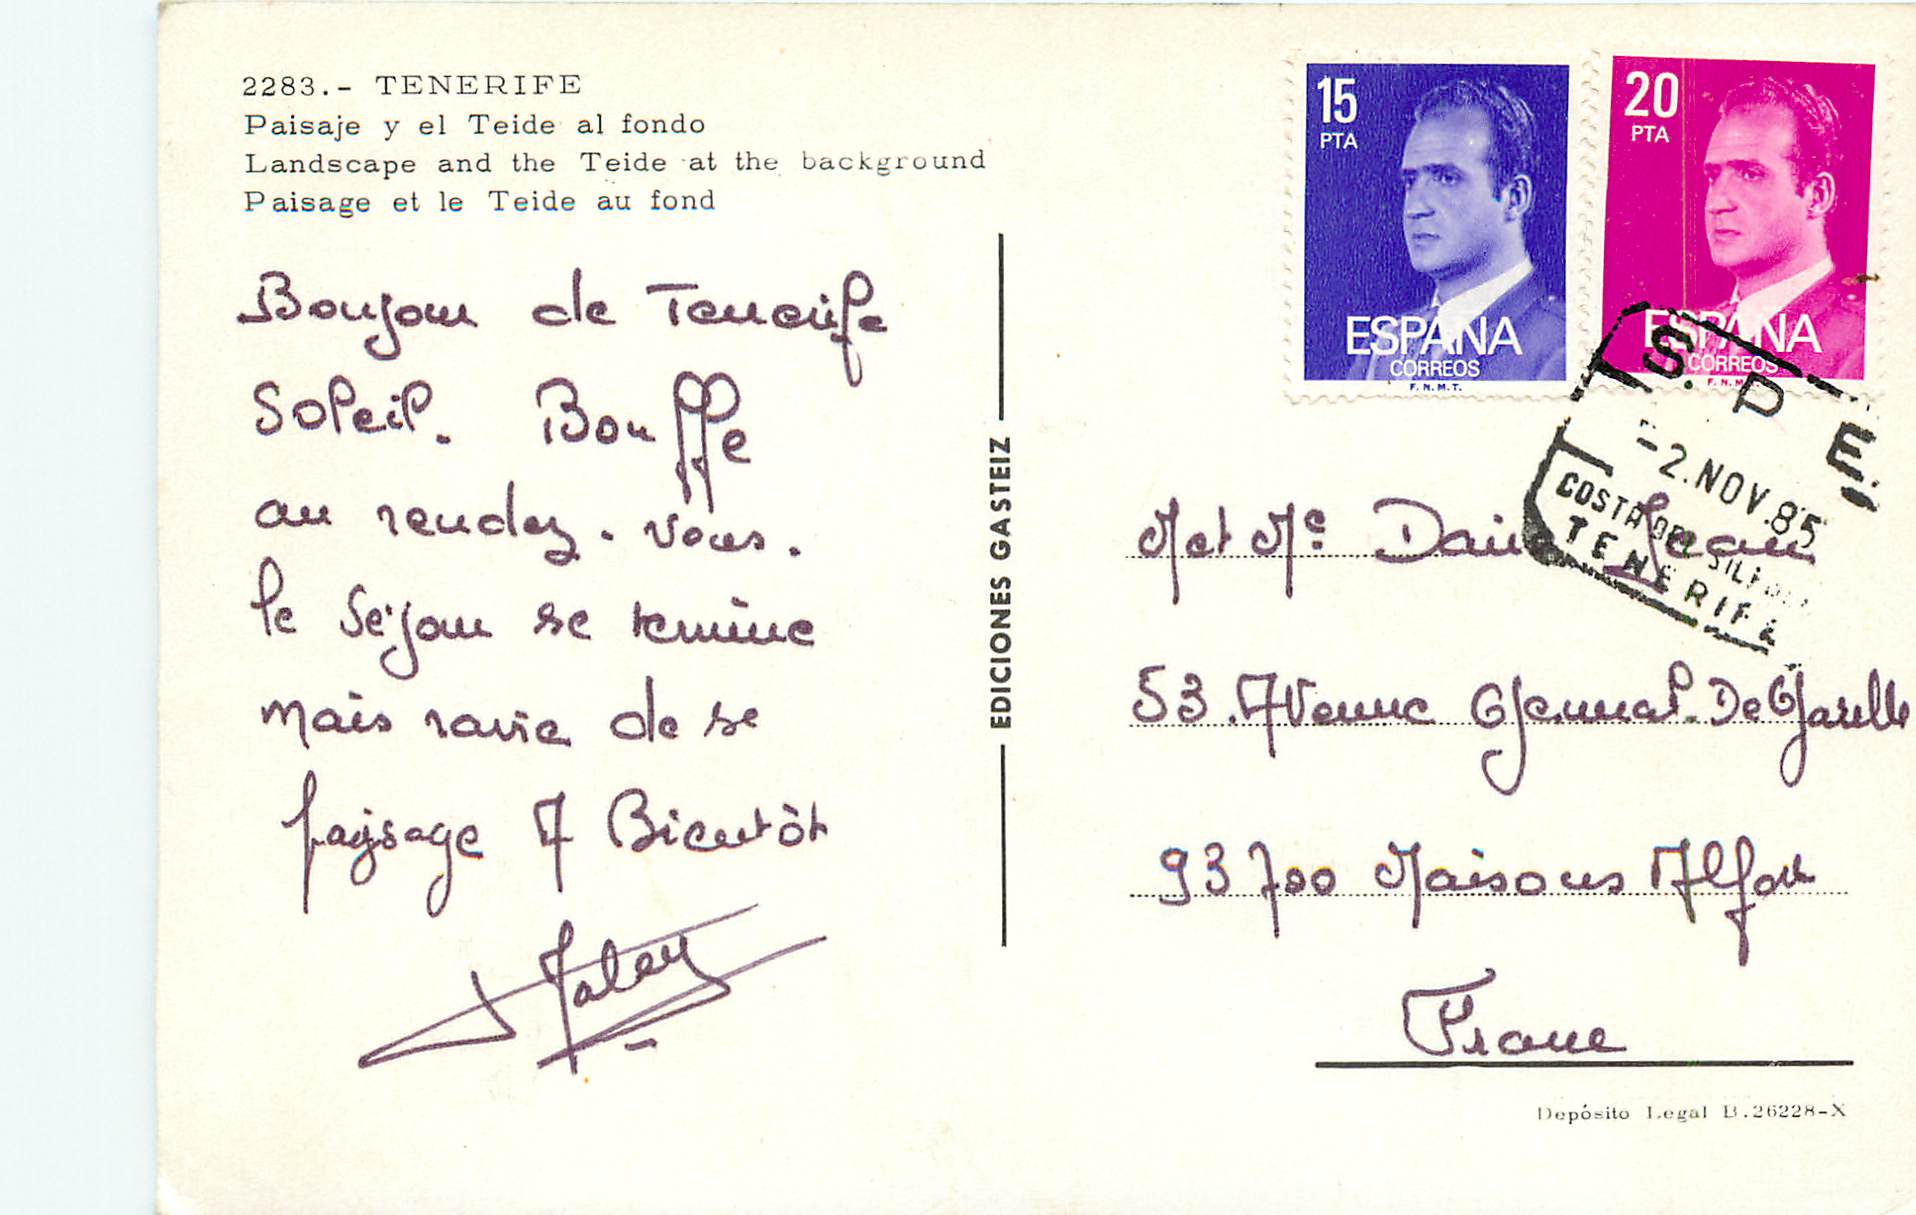 2283.- TENERIFE
Paisaje y el Teide al fondo
Landscape and the Teide at the background
Paisage et le Teide au fond
Bonjour de Tenerife
Soleil. Bouffe
au rendez-vous.
le Séjour se termine
mais ravie de se
paysage A Bientôt
EDICIONES GASTEIZ
15
PTA
ESPAÑA
CORREOS
F.N.M.T.
20
PTA
ESPAÑA
CORREOS
F.N.M.T.
S. P. E.
-2.NOV.85
COSTA DEL SILENCIO
TENERIFE
M et Me Jean
53. Avenue General. De Gaulle
93700 Maisons Alfort
France
Depósito Legal B.26228-X